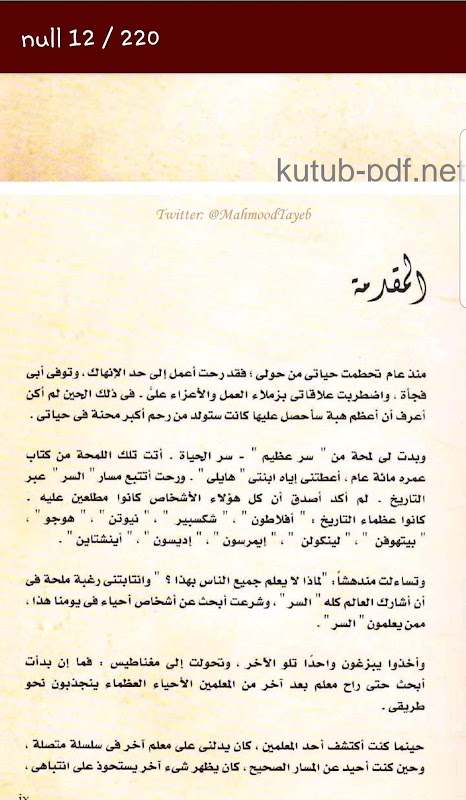 null 12 / 220
kutub-pdf.net
Twitter: @MahmoodTayeb
المقدمة
منذ عام تحطمت حياتى من حولى ؛ فقد رحت أعمل إلى حد الإنهاك ، وتوفى أبى
فجأة ، واضطربت علاقاتى بزملاء العمل والأعزاء علىَّ . فى ذلك الحين لم أكن
أعرف أن أعظم هبة سأحصل عليها كانت ستولد من رحم أكبر محنة فى حياتى .
وبدت لى لمحة من " سر عظيم " - سر الحياة . أتت تلك اللمحة من كتاب
عمره مائة عام ، أعطتنى إياه ابنتى " هايلى" . ورحت أتتبع مسار" السر " عبر
التاريخ . لم أكد أصدق أن كل هؤلاء الأشخاص كانوا مطلعين عليه .
كانوا عظماء التاريخ : " أفلاطون " ، " شكسبير " ، " نيوتن " ، " هوجو " ،
" بيتهوفن " ، " لينكولن " ، " إيمرسون " ، " إديسون " ، " أينشتاين " .
وتساءلت مندهشاً: "لماذا لا يعلم جميع الناس بهذا ؟ " وانتابتنى رغبة ملحة فى
أن أشارك العالم كله " السر" ، وشرعت أبحث عن أشخاص أحياء فى يومنا هذا ،
ممن يعلمون " السر " .
وأخذوا يبزغون واحدًا تلو الآخر ، وتحولت إلى مغناطيس : فما إن بدأت
أبحث حتى راح معلم بعد آخر من المعلمين الأحياء العظماء ينجذبون نحو
طريقى .
حينما كنت أكتشف أحد المعلمين ، كان يدلنى على معلم آخر فى سلسلة متصلة ،
وحين كنت أحيد عن المسار الصحيح ، كان يظهر شىء آخر يستحوذ على انتباهى ،
ix